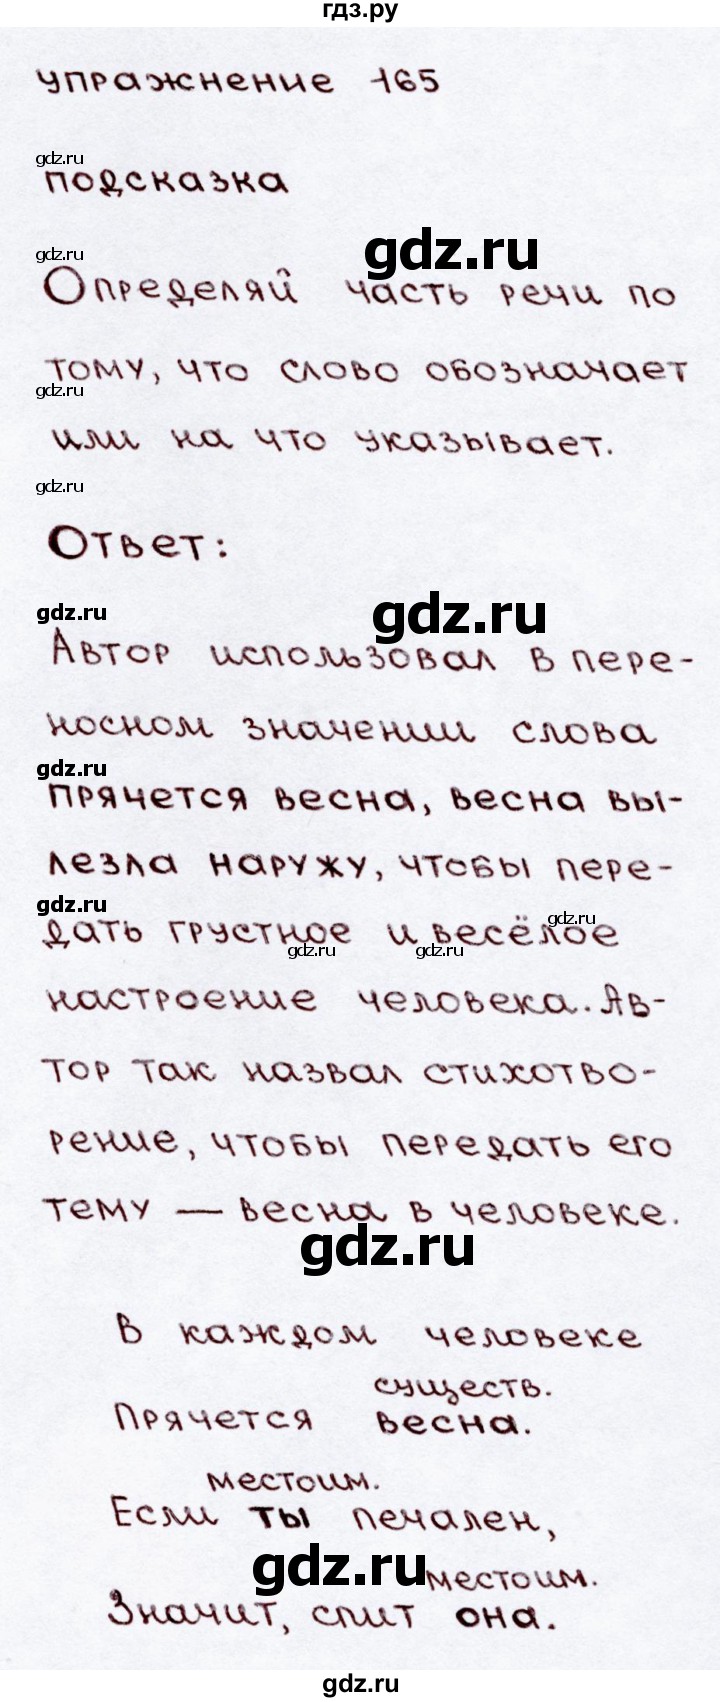 гдз.ру
упражнение 165
gdz.ru
подсказка
gdz.ru
gdz.ru
Определяй часть речи по
тому, что слово обозначает
gdz.ru
или на что указывает.
gdz.ru
Ответ:
gdz.ru
gdz.ru
Автор использовал в пере-
носном значении слова
gdz.ru
прячется весна, весна вы-
лезла наружу, чтобы пере-
gdz.ru
gdz.ru
дать грустное и весёлое
gdz.ru gdz.ru
настроение человека. Ав-
тор так назвал стихотво-
рение, чтобы передать его
тему — весна в человеке.
gdz.ru
В каждом человеке
существ.
Прячется весна.
местоим.
Если ты печален,
gdz.ru
местоим.
Значит, спит она.
gdz.ru